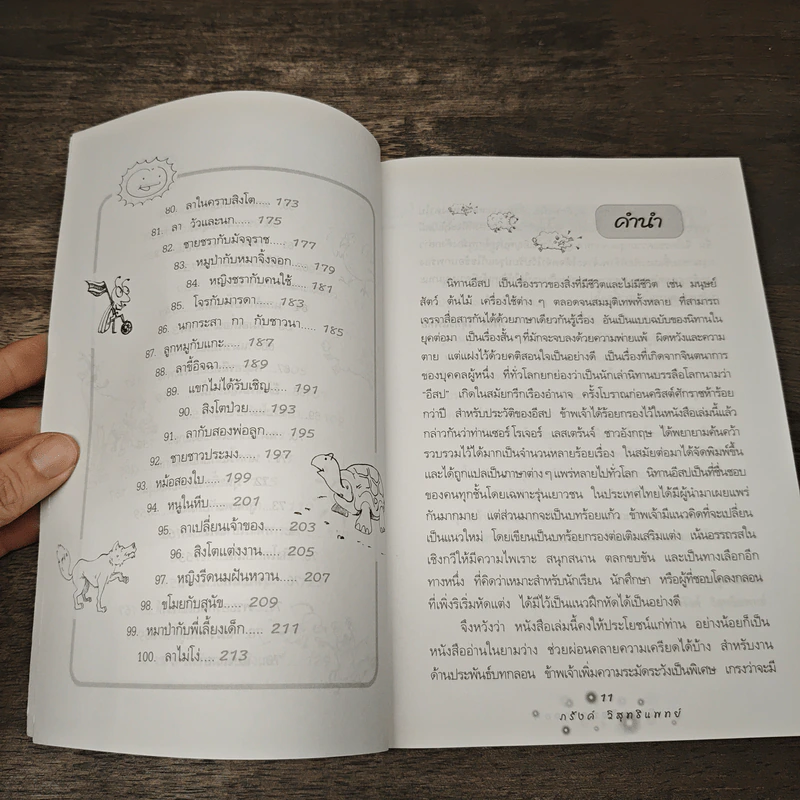 80. ลาในคราบสิงโต..... 173
81. ลา วัวและนก..... 175
82. ชายชรากับมัจจุราช..... 177
83. หมูป่ากับหมาจิ้งจอก..... 179
84. หญิงชรากับคนใช้..... 181
85. โจรกับมารดา..... 183
86. นกกระสา กา กับชาวนา..... 185
87. ลูกหมูกับแกะ..... 187
88. ลาขี้อิจฉา..... 189
89. แขกไม่ได้รับเชิญ..... 191
90. สิงโตป่วย..... 193
91. ลากับสองพ่อลูก..... 195
92. ชายชาวประมง..... 197
93. หม้อสองใบ..... 199
94. หนูในหีบ..... 201
95. ลาเปลี่ยนเจ้าของ..... 203
96. สิงโตแต่งงาน..... 205
97. หญิงรีดนมฝันหวาน..... 207
98. ขโมยกับสุนัข..... 209
99. หมาป่ากับพี่เลี้ยงเด็ก..... 211
100. ลาไม่โง่.... 213
คำนำ
นิทานอีสป เป็นเรื่องราวของสิ่งที่มีชีวิตและไม่มีชีวิต เช่น มนุษย์
สัตว์ ต้นไม้ เครื่องใช้ต่าง ๆ ตลอดจนสมมุติเทพทั้งหลาย ที่สามารถ
เจรจาสื่อสารกันได้ด้วยภาษาเดียวกันรู้เรื่อง อันเป็นแบบฉบับของนิทานใน
ยุคต่อมา เป็นเรื่องสั้นๆที่มักจะจบลงด้วยความพ่ายแพ้ ผิดหวังและความ
ตาย แต่แฝงไว้ด้วยคติสอนใจเป็นอย่างดี เป็นเรื่องที่เกิดจากจินตนาการ
ของบุคคลผู้หนึ่ง ที่ทั่วโลกยกย่องว่าเป็นนักเล่านิทานบรรลือโลกนามว่า
“อีสป” เกิดในสมัยกรีกเรืองอำนาจ ครั้งโบราณก่อนคริสต์ศักราชห้าร้อย
กว่าปี สำหรับประวัติของอีสป ข้าพเจ้าได้ร้อยกรองไว้ในหนังสือเล่มนี้แล้ว
กล่าวกันว่าท่านเซอร์โรเจอร์ เลสเตร้นจ์ ชาวอังกฤษ ได้พยายามค้นคว้า
รวบรวมไว้ได้มากเป็นจำนวนหลายร้อยเรื่อง ในสมัยต่อมาได้จัดพิมพ์ขึ้น
และได้ถูกแปลเป็นภาษาต่างๆแพร่หลายไปทั่วโลก นิทานอีสปเป็นที่ชื่นชอบ
ของคนทุกชั้นโดยเฉพาะรุ่นเยาวชน ในประเทศไทยได้มีผู้นำมาเผยแพร่
กันมากมาย แต่ส่วนมากจะเป็นบทร้อยแก้ว ข้าพเจ้ามีแนวคิดที่จะเปลี่ยน
เป็นแนวใหม่ โดยเขียนเป็นบทร้อยกรองต่อเติมเสริมแต่ง เน้นอรรถรสใน
เชิงกวีให้มีความไพเราะ สนุกสนาน ตลกขบขัน และเป็นทางเลือกอีก
ทางหนึ่ง ที่คิดว่าเหมาะสำหรับนักเรียน นักศึกษา หรือผู้ที่ชอบโคลงกลอน
ที่เพิ่งริเริ่มหัดแต่ง ได้มีไว้เป็นแนวฝึกหัดได้เป็นอย่างดี
จึงหวังว่า หนังสือเล่มนี้คงให้ประโยชน์แก่ท่าน อย่างน้อยก็เป็น
หนังสืออ่านในยามว่าง ช่วยผ่อนคลายความเครียดได้บ้าง สำหรับงาน
ด้านประพันธ์บทกลอน ข้าพเจ้าเพิ่มความระมัดระวังเป็นพิเศษ เกรงว่าจะมี
11
ภรังค์ วิสุทธิแพทย์